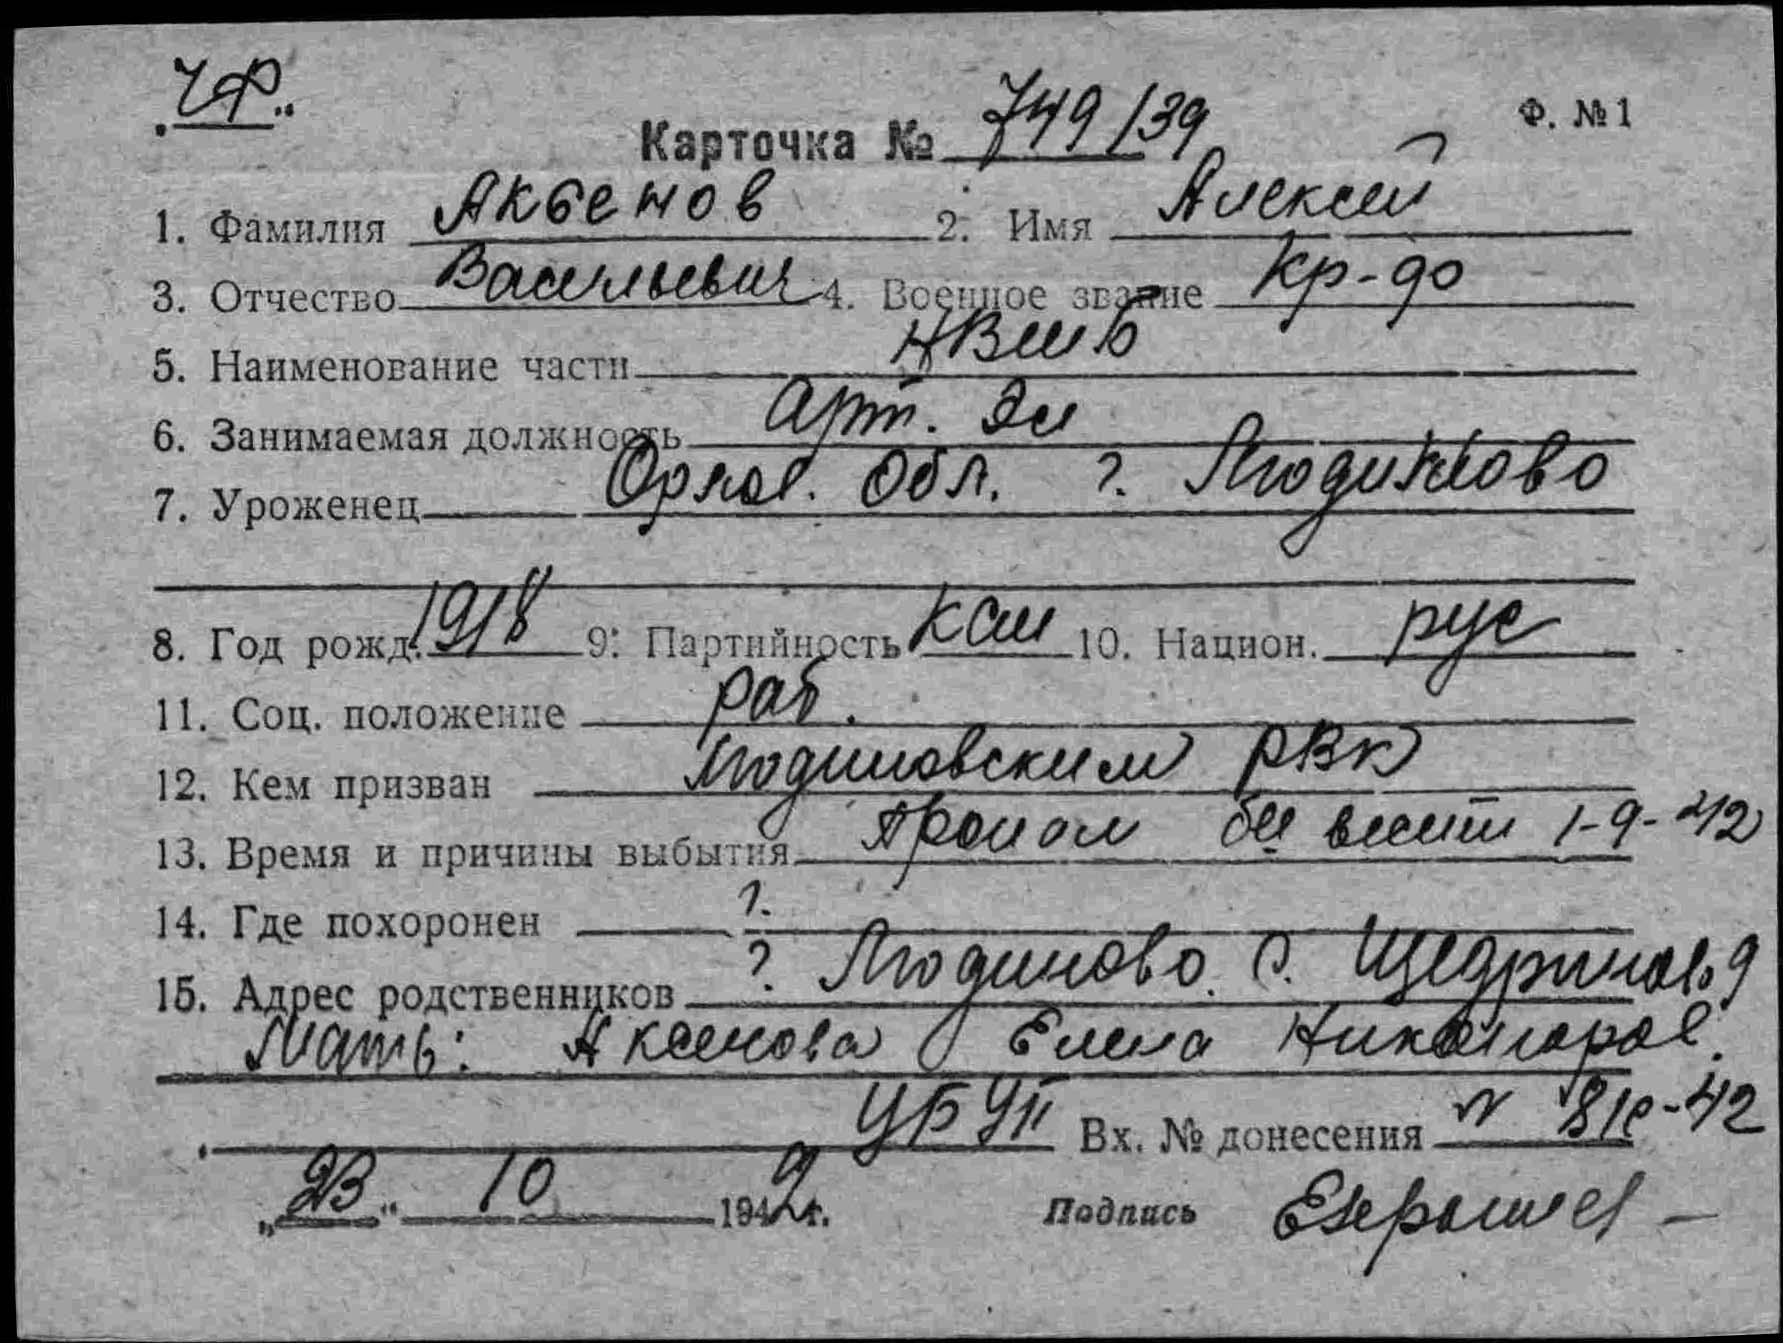 „ЧФ“
Ф. № 1
Карточка № 749/39
1. Фамилия Аксенов 2. Имя Алексей
3. Отчество Васильевич 4. Военное звание Кр-фо
5. Наименование части
6. Занимаемая должность Арт. Эл
7. Уроженец Орлов. Обл. г. Людиново
8. Год рожд. 1918 9. Партийность 10. Национ. рус
11. Соц. положение раб.
12. Кем призван Людиновским РВК
13. Время и причины выбытия Пропал без вести 1-9-42
14. Где похоронен
15. Адрес родственников г. Людиново.
Мать: Аксенова Елена
УБУП Вх. № донесения
„23“ 10 1942 г. Подпись